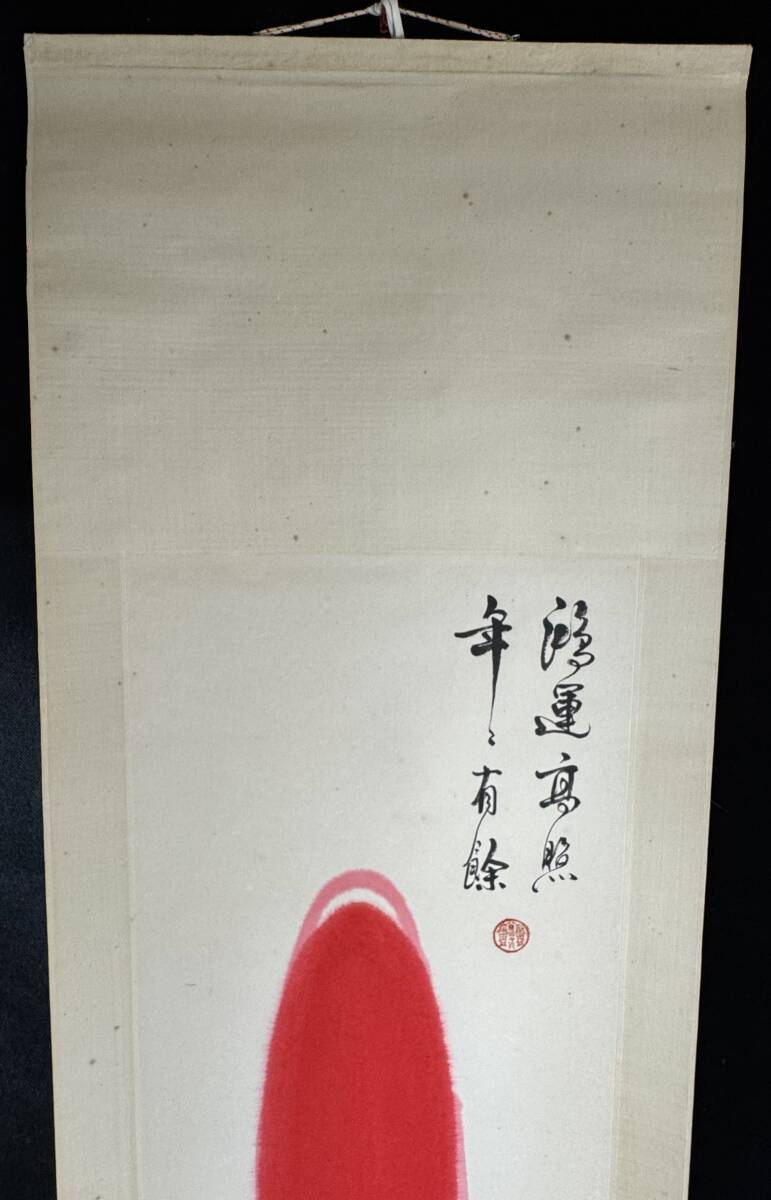 鴻運高照
年〻有餘